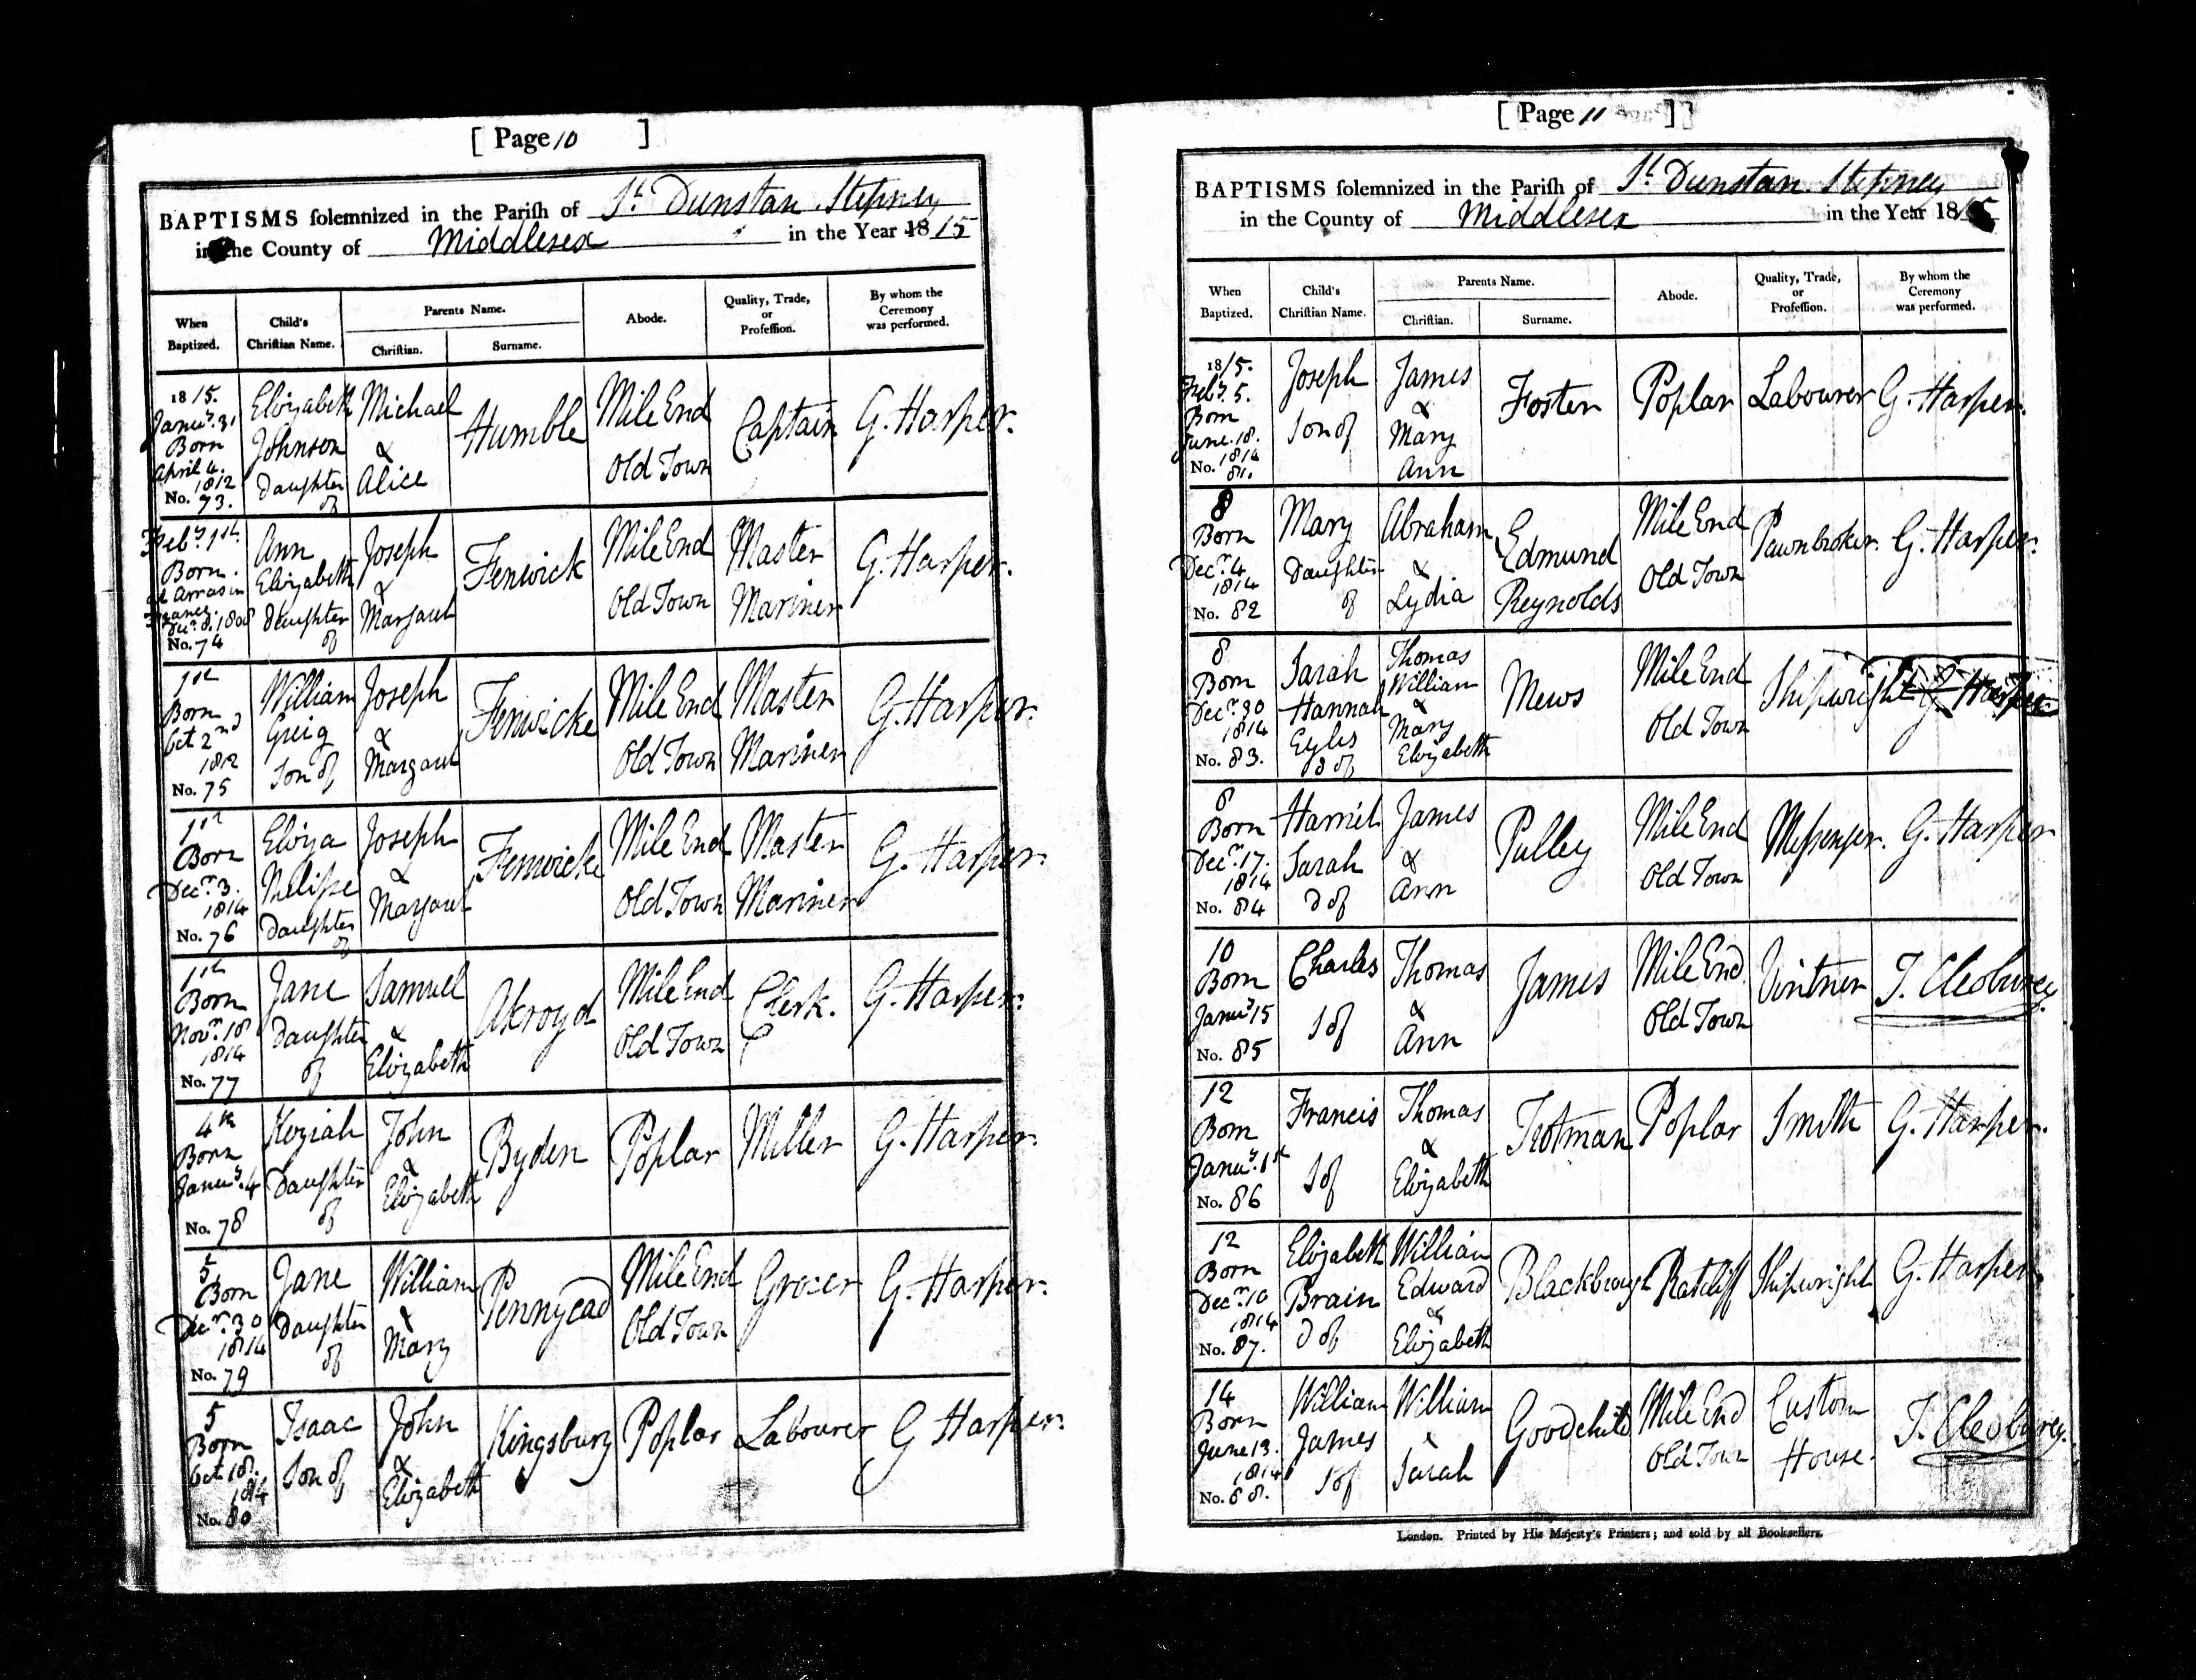 [ Page 10 ]
BAPTISMS solemnized in the Parish of St. Dunstan Stepney
in the County of Middlesex in the Year 1815
When Baptized. Child's Christian Name. Parents Name. Christian. Surname. Abode. Quality, Trade, or Profession. By whom the Ceremony was performed.
1815.
Janu.y 31
Born
April 4.
1812
No. 73.
Elizabeth
Johnson
Daughter
of
Michael
&
Alice
Humble
Mile End
Old Town
Captain
G. Harper.
Feb.y 1st.
Born.
at Arras in
France.
Dec.r 8. 1808
No. 74
Ann
Elizabeth
Daughter
of
Joseph
&
Margaret
Fenwick
Mile End
Old Town
Master
Mariner
G. Harper.
1st
Born
Oct 2nd
1812
No. 75
William
Greig
Son of
Joseph
&
Margaret
Fenwicke
Mile End
Old Town
Master
Mariner
G. Harper.
1st
Born
Dec.r 3.
1814
No. 76
Eliza
Daughter
of
Joseph
&
Margaret
Fenwicke
Mile End
Old Town
Master
Mariner
G. Harper.
1st
Born
Nov.r 18
1814
No. 77
Jane
Daughter
of
Samuel
&
Elizabeth
Akroyd
Mile End
Old Town
Clerk.
G. Harper.
4th
Born
Janu.y 4
No. 78
Keziah
Daughter
of
John
&
Elizabeth
Byden
Poplar
Miller
G. Harper.
5
Born
Dec.r 30
1814
No. 79
Jane
Daughter
of
William
&
Mary
Pennycad
Mile End
Old Town
Grocer
G. Harper.
5
Born
Oct. 18.
1814
No. 80
Isaac
Son of
John
&
Elizabeth
Kingsbury
Poplar
Labourer
G Harper.
[ Page 11 ]
BAPTISMS solemnized in the Parish of St. Dunstan Stepney
in the County of Middlesex in the Year 1815
When Baptized. Child's Christian Name. Parents Name. Christian. Surname. Abode. Quality, Trade, or Profession. By whom the Ceremony was performed.
1815.
Feb.y 5.
Born
June. 18.
1814
No. 81.
Joseph
Son of
James
&
Mary
Ann
Foster
Poplar
Labourer
G. Harper.
8
Born
Dec.r 4
1814
No. 82
Mary
Daughter
of
Abraham
&
Lydia
Edmund
Reynolds
Mile End
Old Town
Pawnbroker.
G. Harper.
8
Born
Dec.r 30
1814
No. 83.
Sarah
Hannah
Eyles
D of
Thomas
William
&
Mary
Elizabeth
Mews
Mile End
Old Town
Shipwright
G. Harper
8
Born
Dec.r 17.
1814
No. 84
Harriet
Sarah
D of
James
&
Ann
Pulley
Mile End
Old Town
Messenger.
G. Harper
10
Born
Janu.y 15
No. 85
Charles
S of
Thomas
&
Ann
James
Mile End
Old Town
Vintner
T. Cleoburey.
12
Born
Janu.y 1st
No. 86
Francis
S of
Thomas
&
Elizabeth
Trotman
Poplar
Smith
G. Harper.
12
Born
Dec.r 10
1814
No. 87.
Elizabeth
Brain
D of
William
Edward
&
Elizabeth
Blackbrough
Ratcliff
Shipwright
G. Harper.
14
Born
June 13.
1814
No. 88.
William
James
S of
William
&
Sarah
Goodchild
Mile End
Old Town
Custom
House.
T. Cleoburey.
London. Printed by His Majesty's Printers; and sold by all Booksellers.